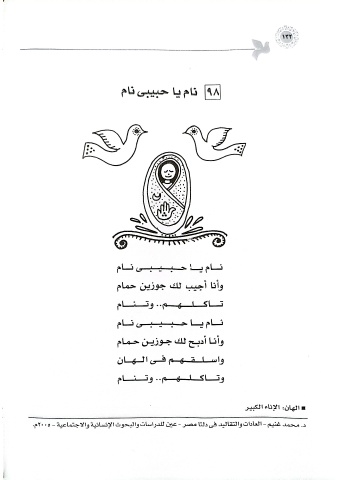 ١٢٢
٩٨ نام يا حبيبى نام
نام يا حبيبى نام
وأنا أجيب لك جوزين حمام
تاكلهم.. وتنام
نام يا حبيبى نام
وأنا أدبح لك جوزين حمام
واسلقهم فى الهان
وتاكلهم.. وتنام
■ الهان: الإناء الكبير
د. محمد غنيم - العادات والتقاليد فى دلتا مصر - عين للدراسات والبحوث الإنسانية والاجتماعية - ٢٠٠٥م.